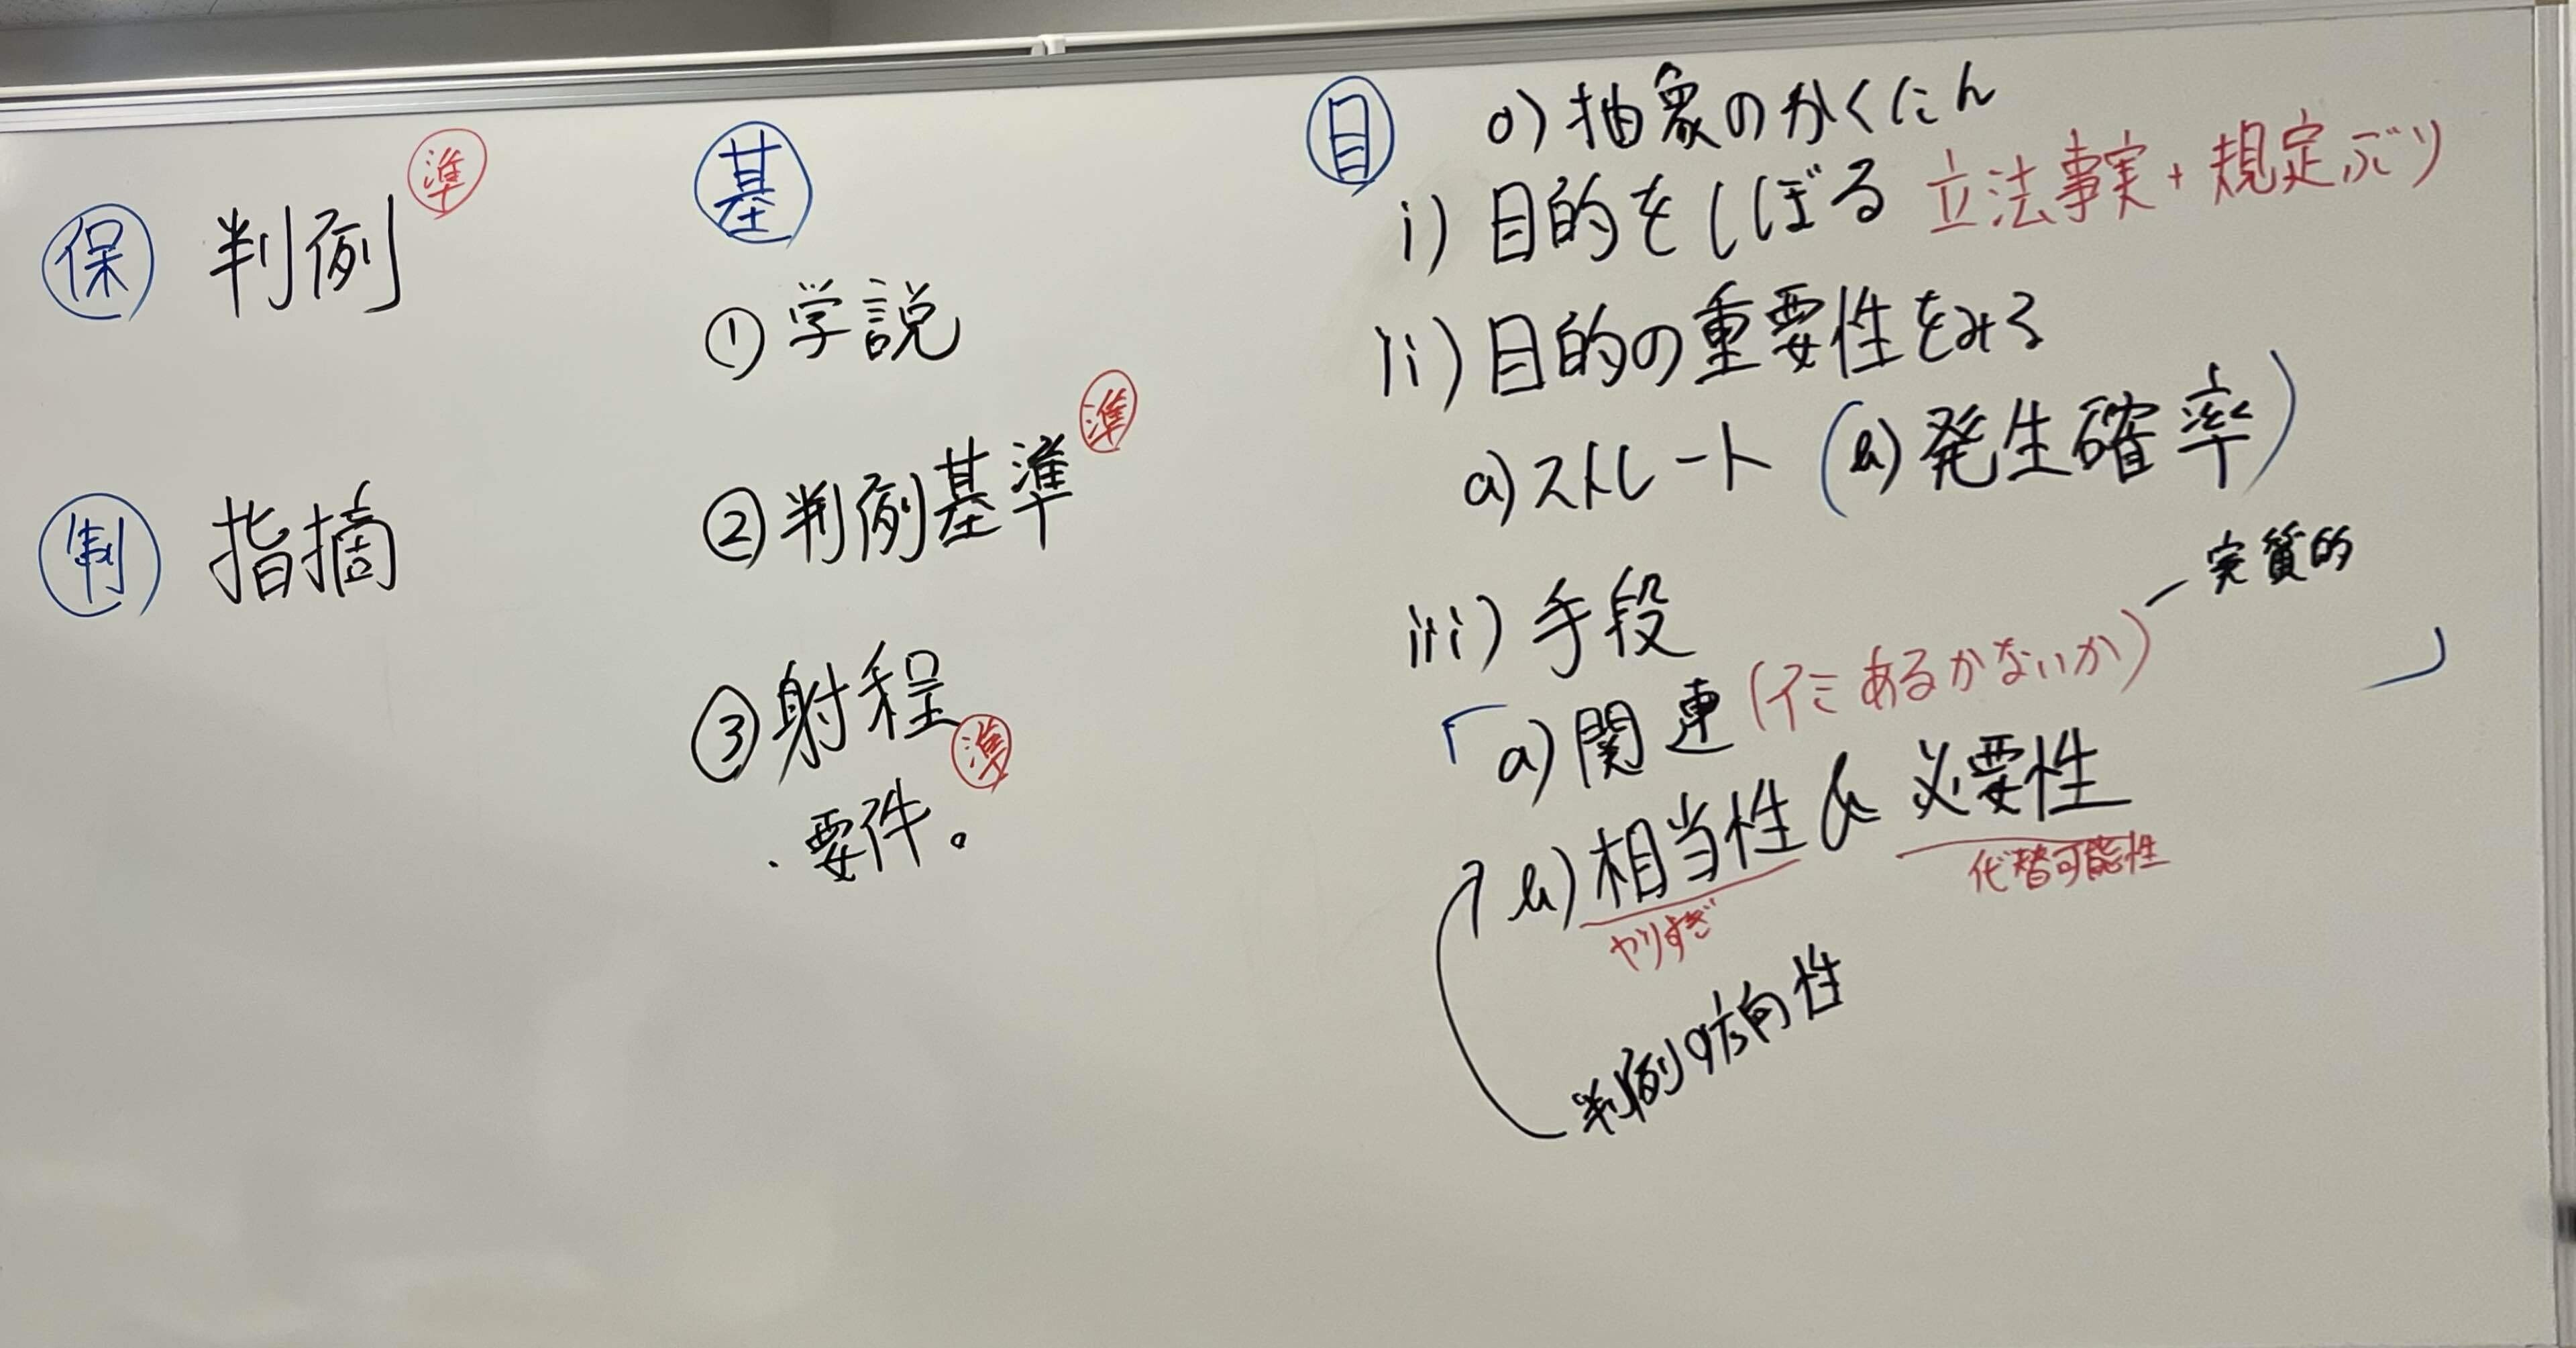 保 判例 準
制 指摘
基
① 学説
② 判例基準 準
③ 射程 準
・要件。
目 0) 抽象のかくにん
i) 目的をしぼる 立法事実+規定ぶり
ii) 目的の重要性をみる
a) ストレート (b) 発生確率)
iii) 手段
「a) 関連 (イミあるかないか) ー実質的 」
b) 相当性 & 必要性
やりすぎ 代替可能性
判例の方向性